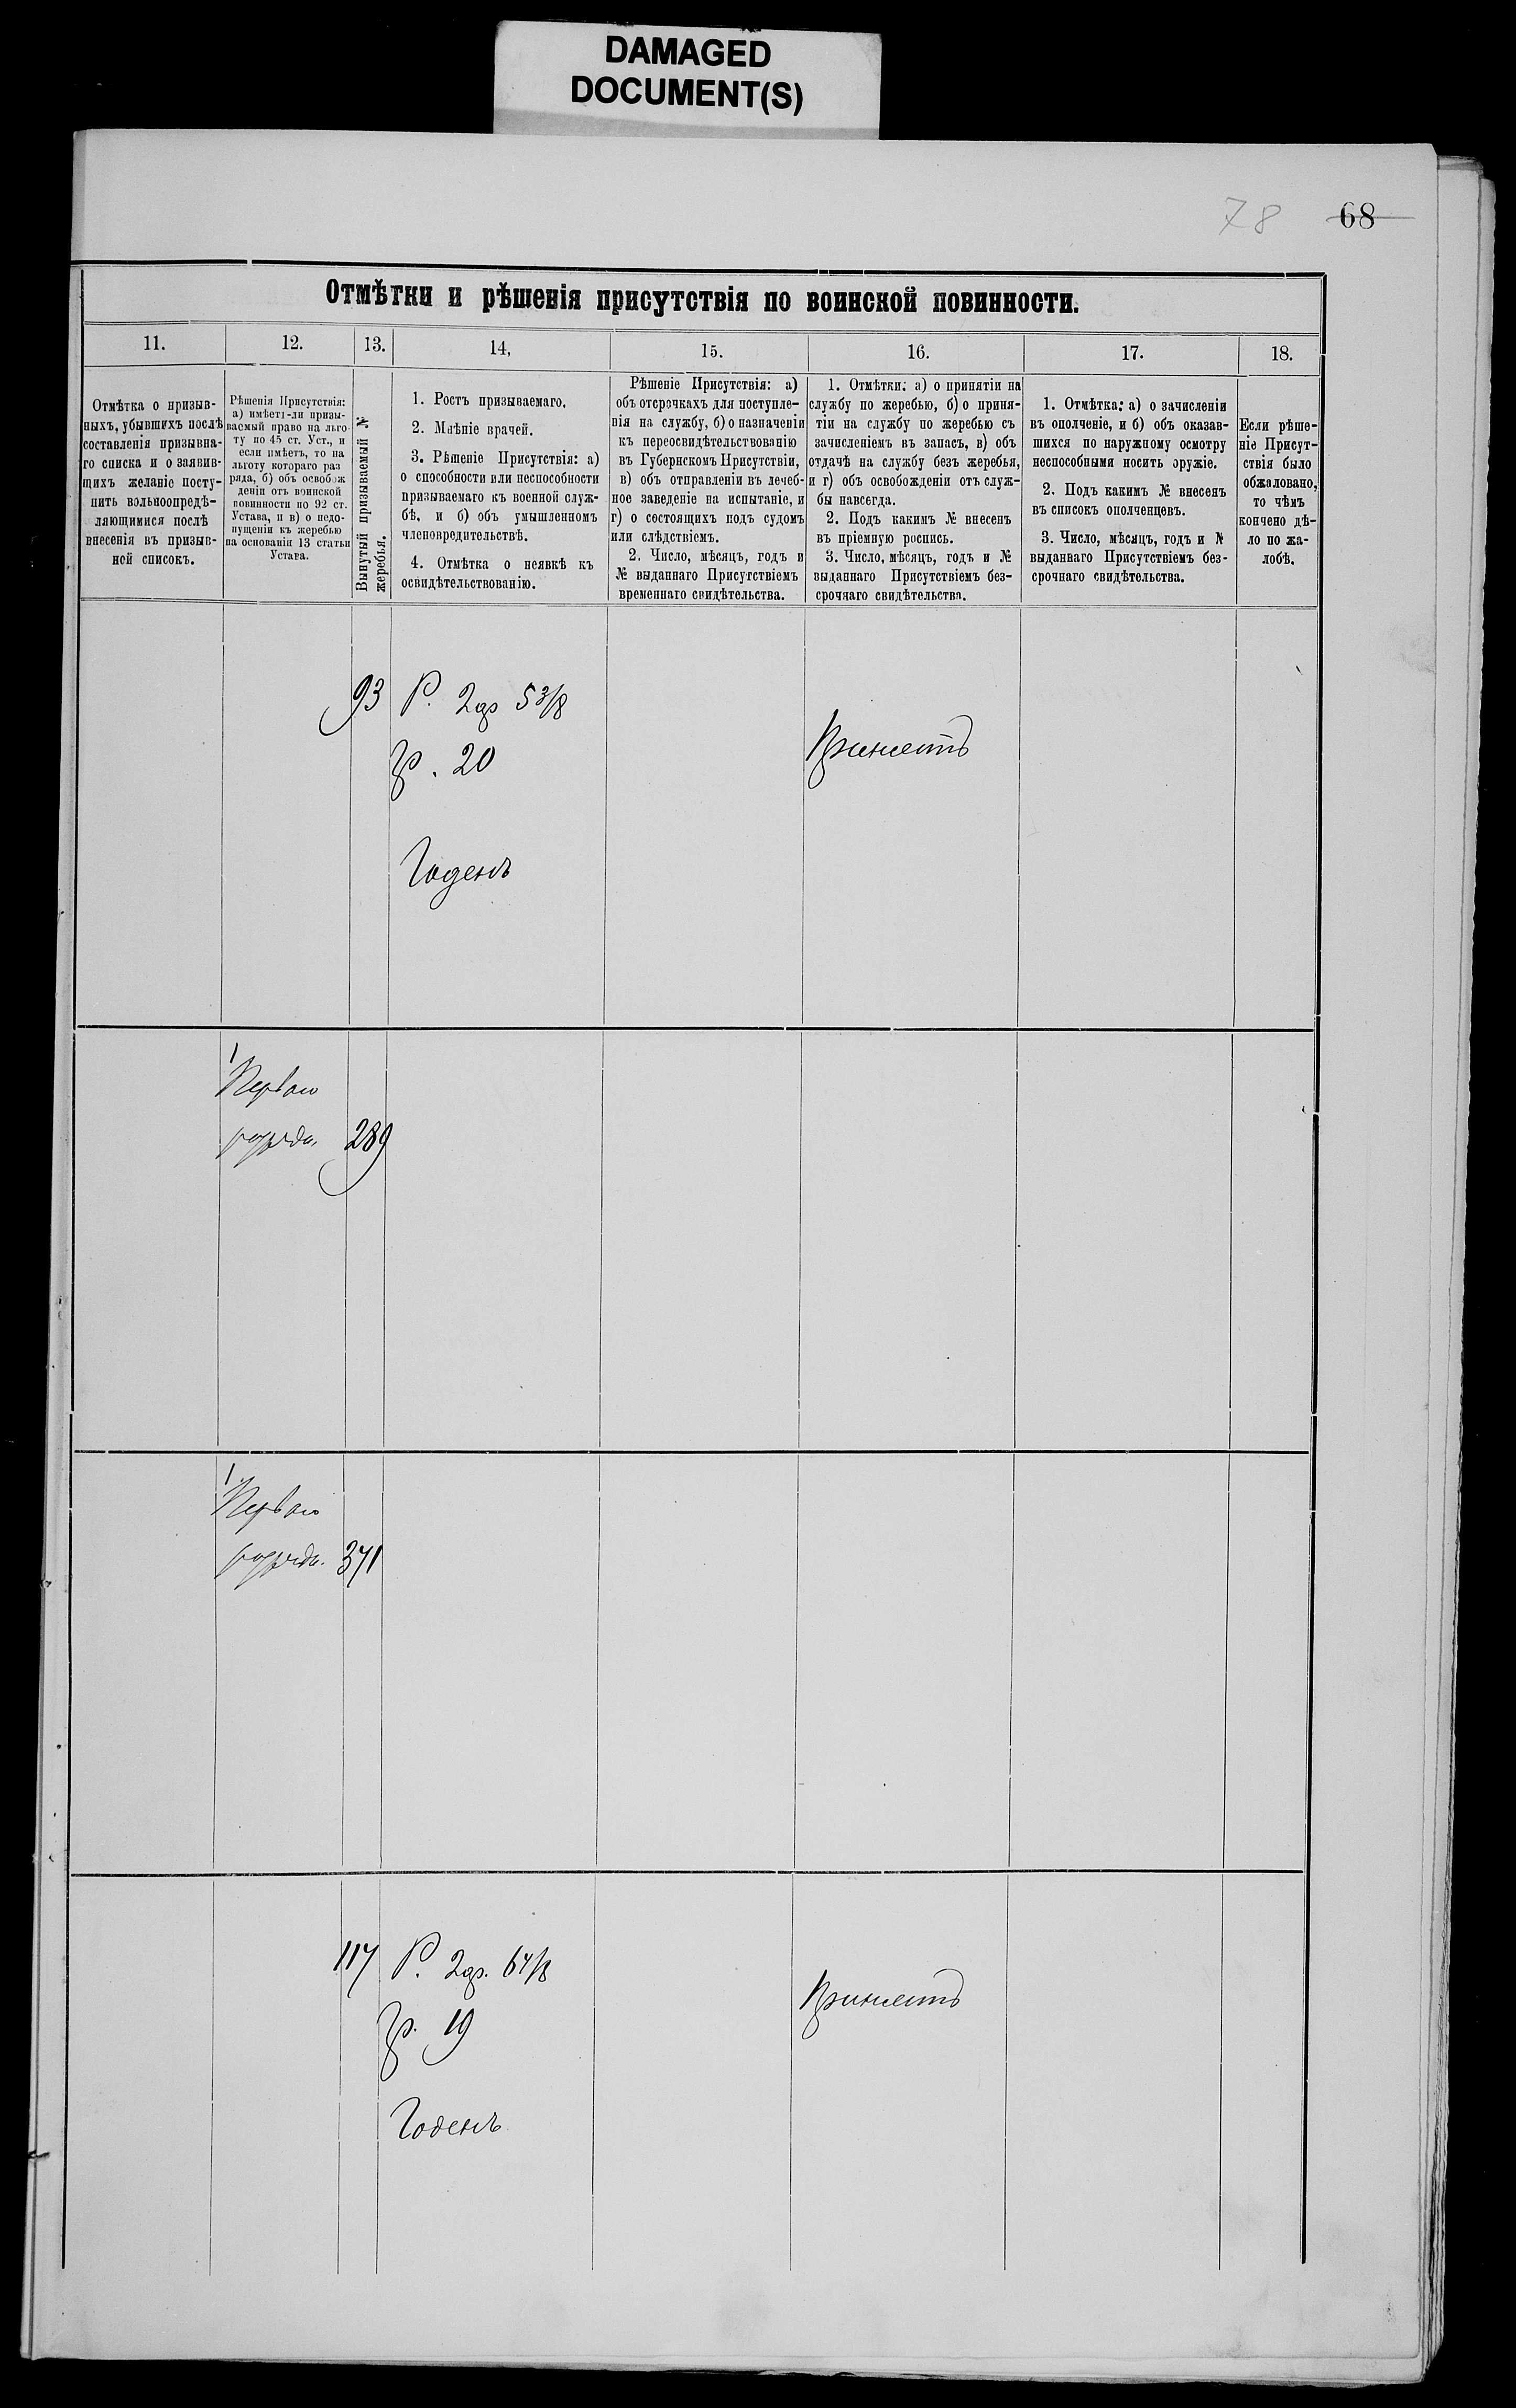 DAMAGED
DOCUMENT(S)
78 68
Отмѣтки и рѣшенія присутствія по воинской повинности.
11. 12. 13. 14, 15. 16. 17. 18.
Отмѣтка о призыв-
ныхъ, убывшихъ послѣ
составленія призывна-
го списка и о заявив-
щихъ желаніе посту-
пить вольноопредѣ-
ляющимися послѣ
внесенія въ призыв-
ной списокъ.
Рѣшенія Присутствія:
а) имѣетъ-ли призы-
ваемый право на льго-
ту по 45 ст. Уст., и
если имѣетъ, то на
льготу котораго раз
ряда, б) объ освобож
деніи отъ воинской
повинности по 92 ст.
Устава, и в) о недо-
пущеніи къ жеребью
на основаніи 13 статьи
Устава.
Вынутый призываемый №
жеребья.
1. Ростъ призываемаго.
2. Мнѣніе врачей.
3. Рѣшеніе Присутствія: а)
о способности или неспособности
призываемаго къ военной служ-
бѣ, и б) объ умышленномъ
членовредительствѣ.
4. Отмѣтка о неявкѣ къ
освидѣтельствованію.
Рѣшеніе Присутствія: а)
объ отсрочкахъ для поступле-
нія на службу, б) о назначеніи
къ переосвидѣтельствованію
въ Губернскомъ Присутствіи,
в) объ отправленіи въ лечеб-
ное заведеніе на испытаніе, и
г) о состоящихъ подъ судомъ
или слѣдствіемъ.
2. Число, мѣсяцъ, годъ и
№ выданнаго Присутствіемъ
временнаго свидѣтельства.
1. Отмѣтки: а) о принятіи на
службу по жеребью, б) о приня-
тіи на службу по жеребью съ
зачисленіемъ въ запасъ, в) объ
отдачѣ на службу безъ жеребья,
и г) объ освобожденіи отъ служ-
бы навсегда.
2. Подъ какимъ № внесенъ
въ пріемную роспись.
3. Число, мѣсяцъ, годъ и №
выданнаго Присутствіемъ без-
срочнаго свидѣтельства.
1. Отмѣтка: а) о зачисленіи
въ ополченіе, и б) объ оказав-
шихся по наружному осмотру
неспособными носить оружіе.
2. Подъ какимъ № внесенъ
въ списокъ ополченцевъ.
3. Число, мѣсяцъ, годъ и №
выданнаго Присутствіемъ без-
срочнаго свидѣтельства.
Если рѣше-
ніе Присут-
ствія было
обжаловано,
то чѣмъ
кончено дѣ-
ло по жа-
лобѣ.
93 Р. 2ар 5 3/8
гр. 20
Принять
Годенъ
Перваго
разряда. 289
Перваго
разряда. 371
117 Р. 2ар. 6 4/8
гр. 19
Принять
Годенъ